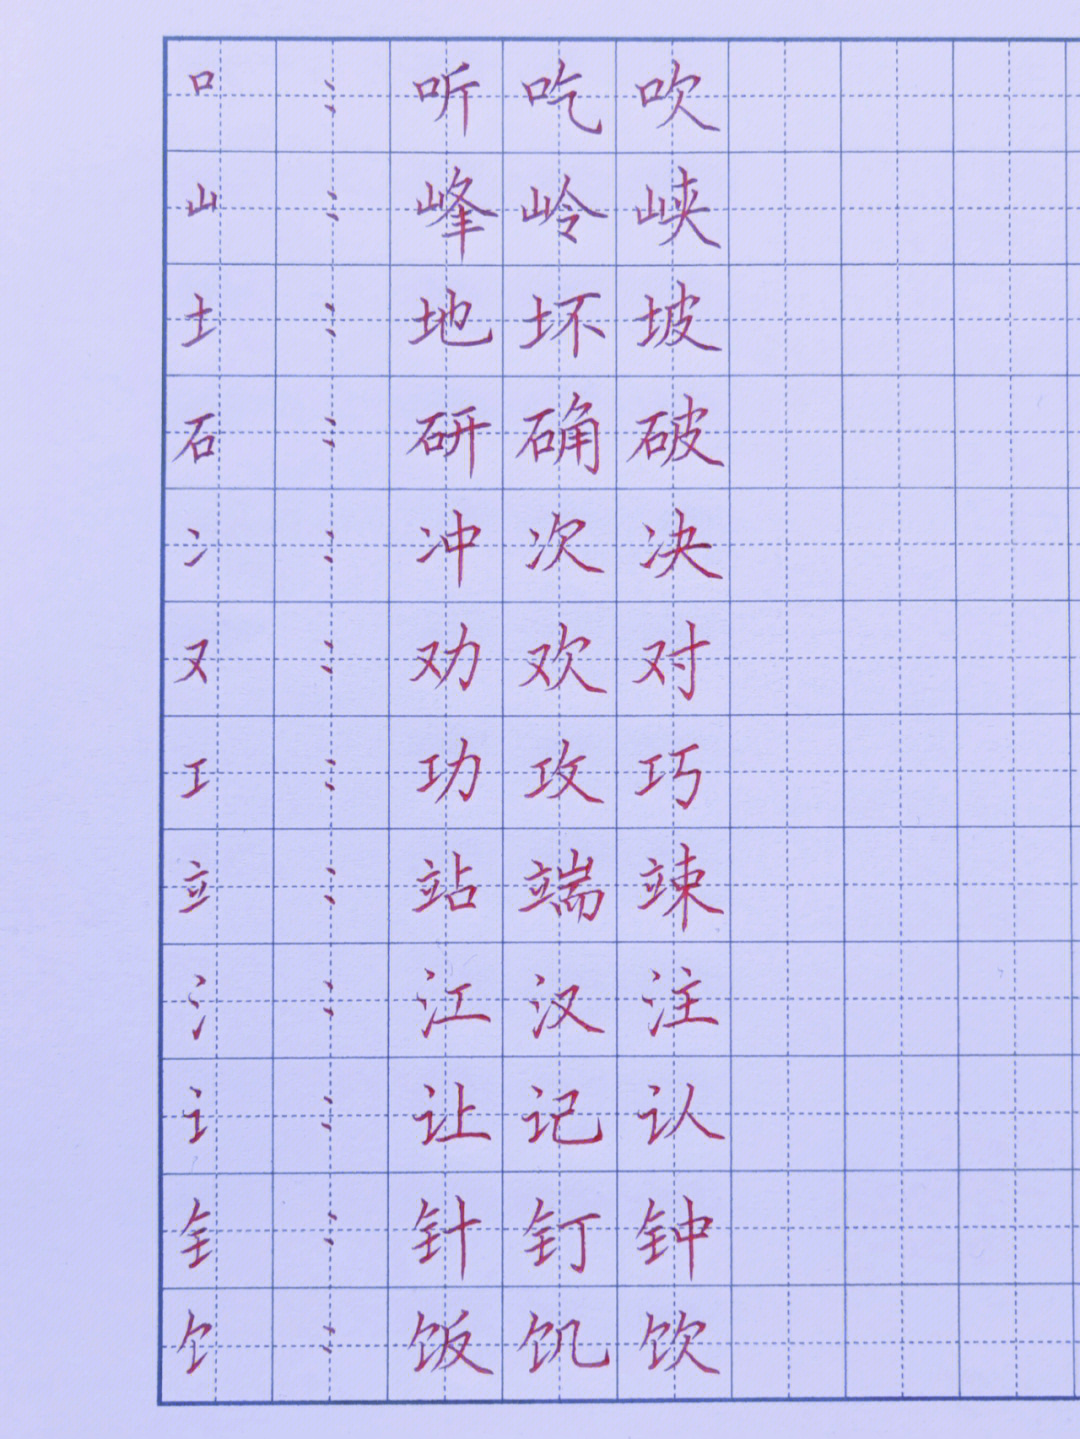 口：听吃吹
山：峰岭峡
土：地坏坡
石：研确破
冫：冲次决
又：劝欢对
工：功攻巧
立：站端竦
氵：江汉注
讠：让记认
钅：针钉钟
饣：饭饥饮